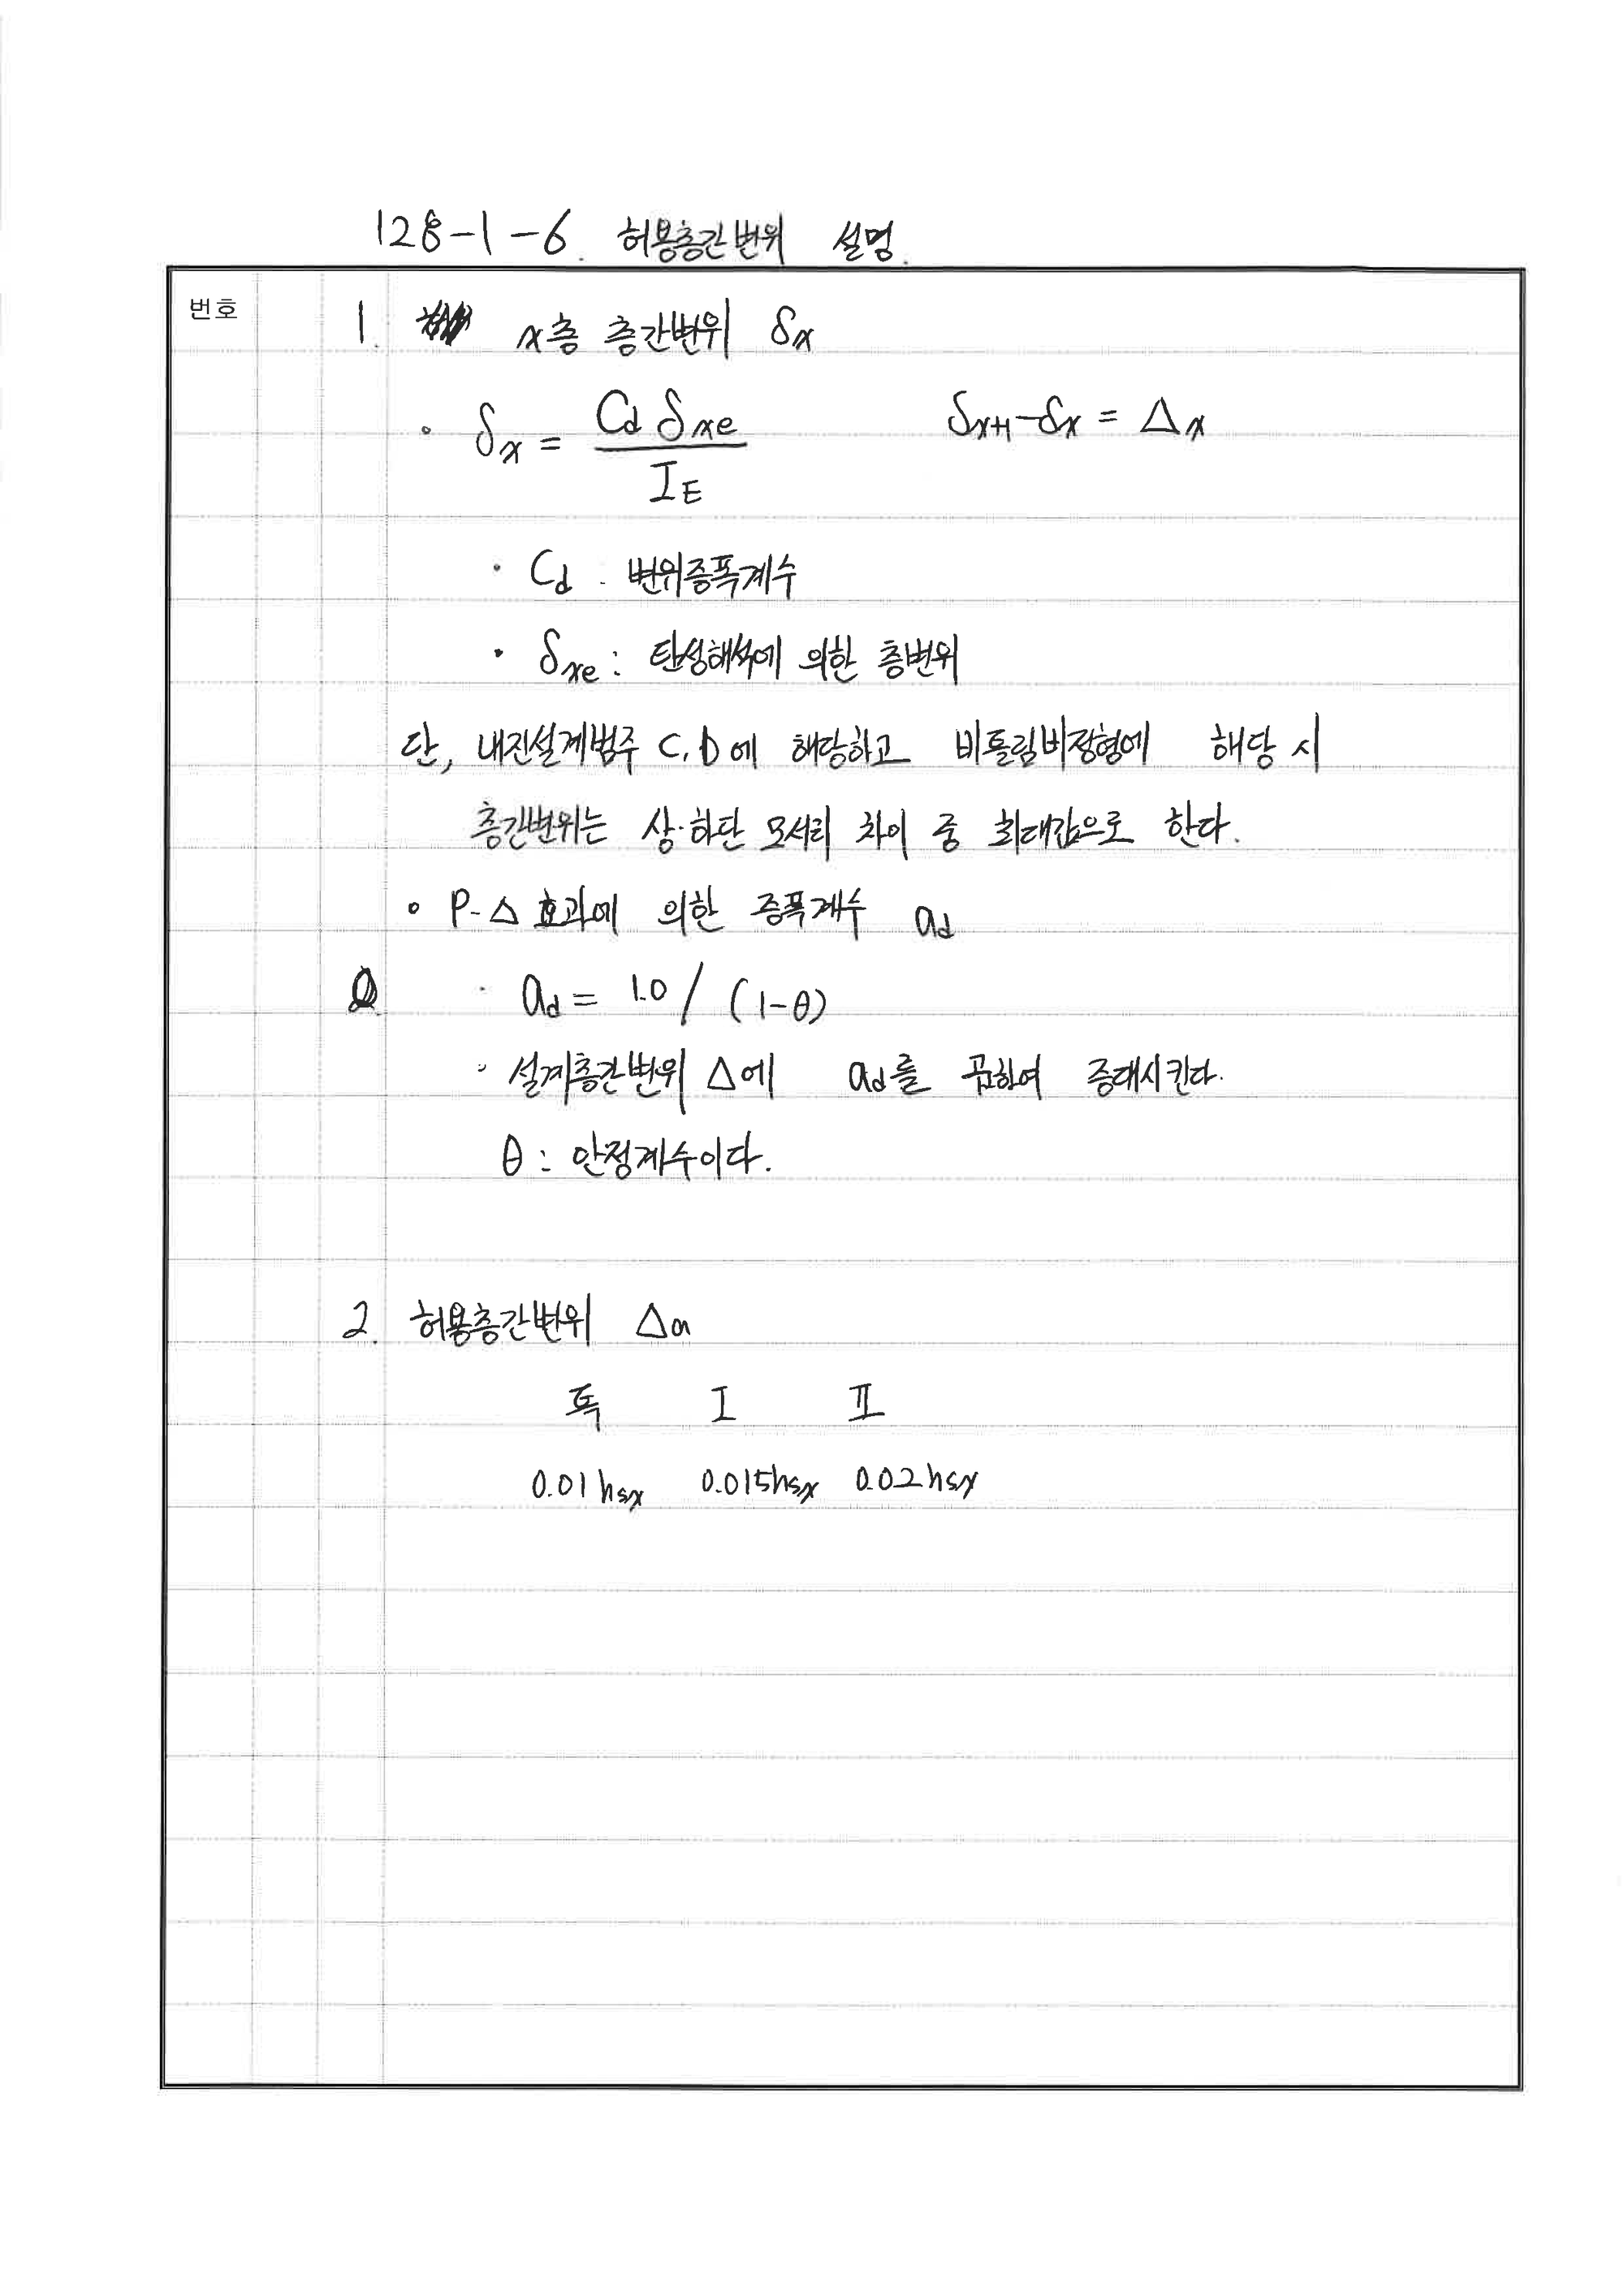 128-1-6. 허용층간변위 설명.
번호
1. x층 층간변위 δx
· δx = Cd δxe / IE    δx+1-δx = Δx
· Cd : 변위증폭계수
· δxe : 탄성해석에 의한 층변위
단, 내진설계범주 C, D에 해당하고 비틀림비정형에 해당 시
층간변위는 상·하단 모서리 차이 중 최대값으로 한다.
∘ P-Δ 효과에 의한 증폭계수 ad
· ad = 1.0 / (1-θ)
· 설계층간변위 Δ에 ad를 곱하여 증대시킨다.
θ : 안정계수이다.
2. 허용층간변위 Δa
특 I II
0.01hsx 0.015hsx 0.02hsx